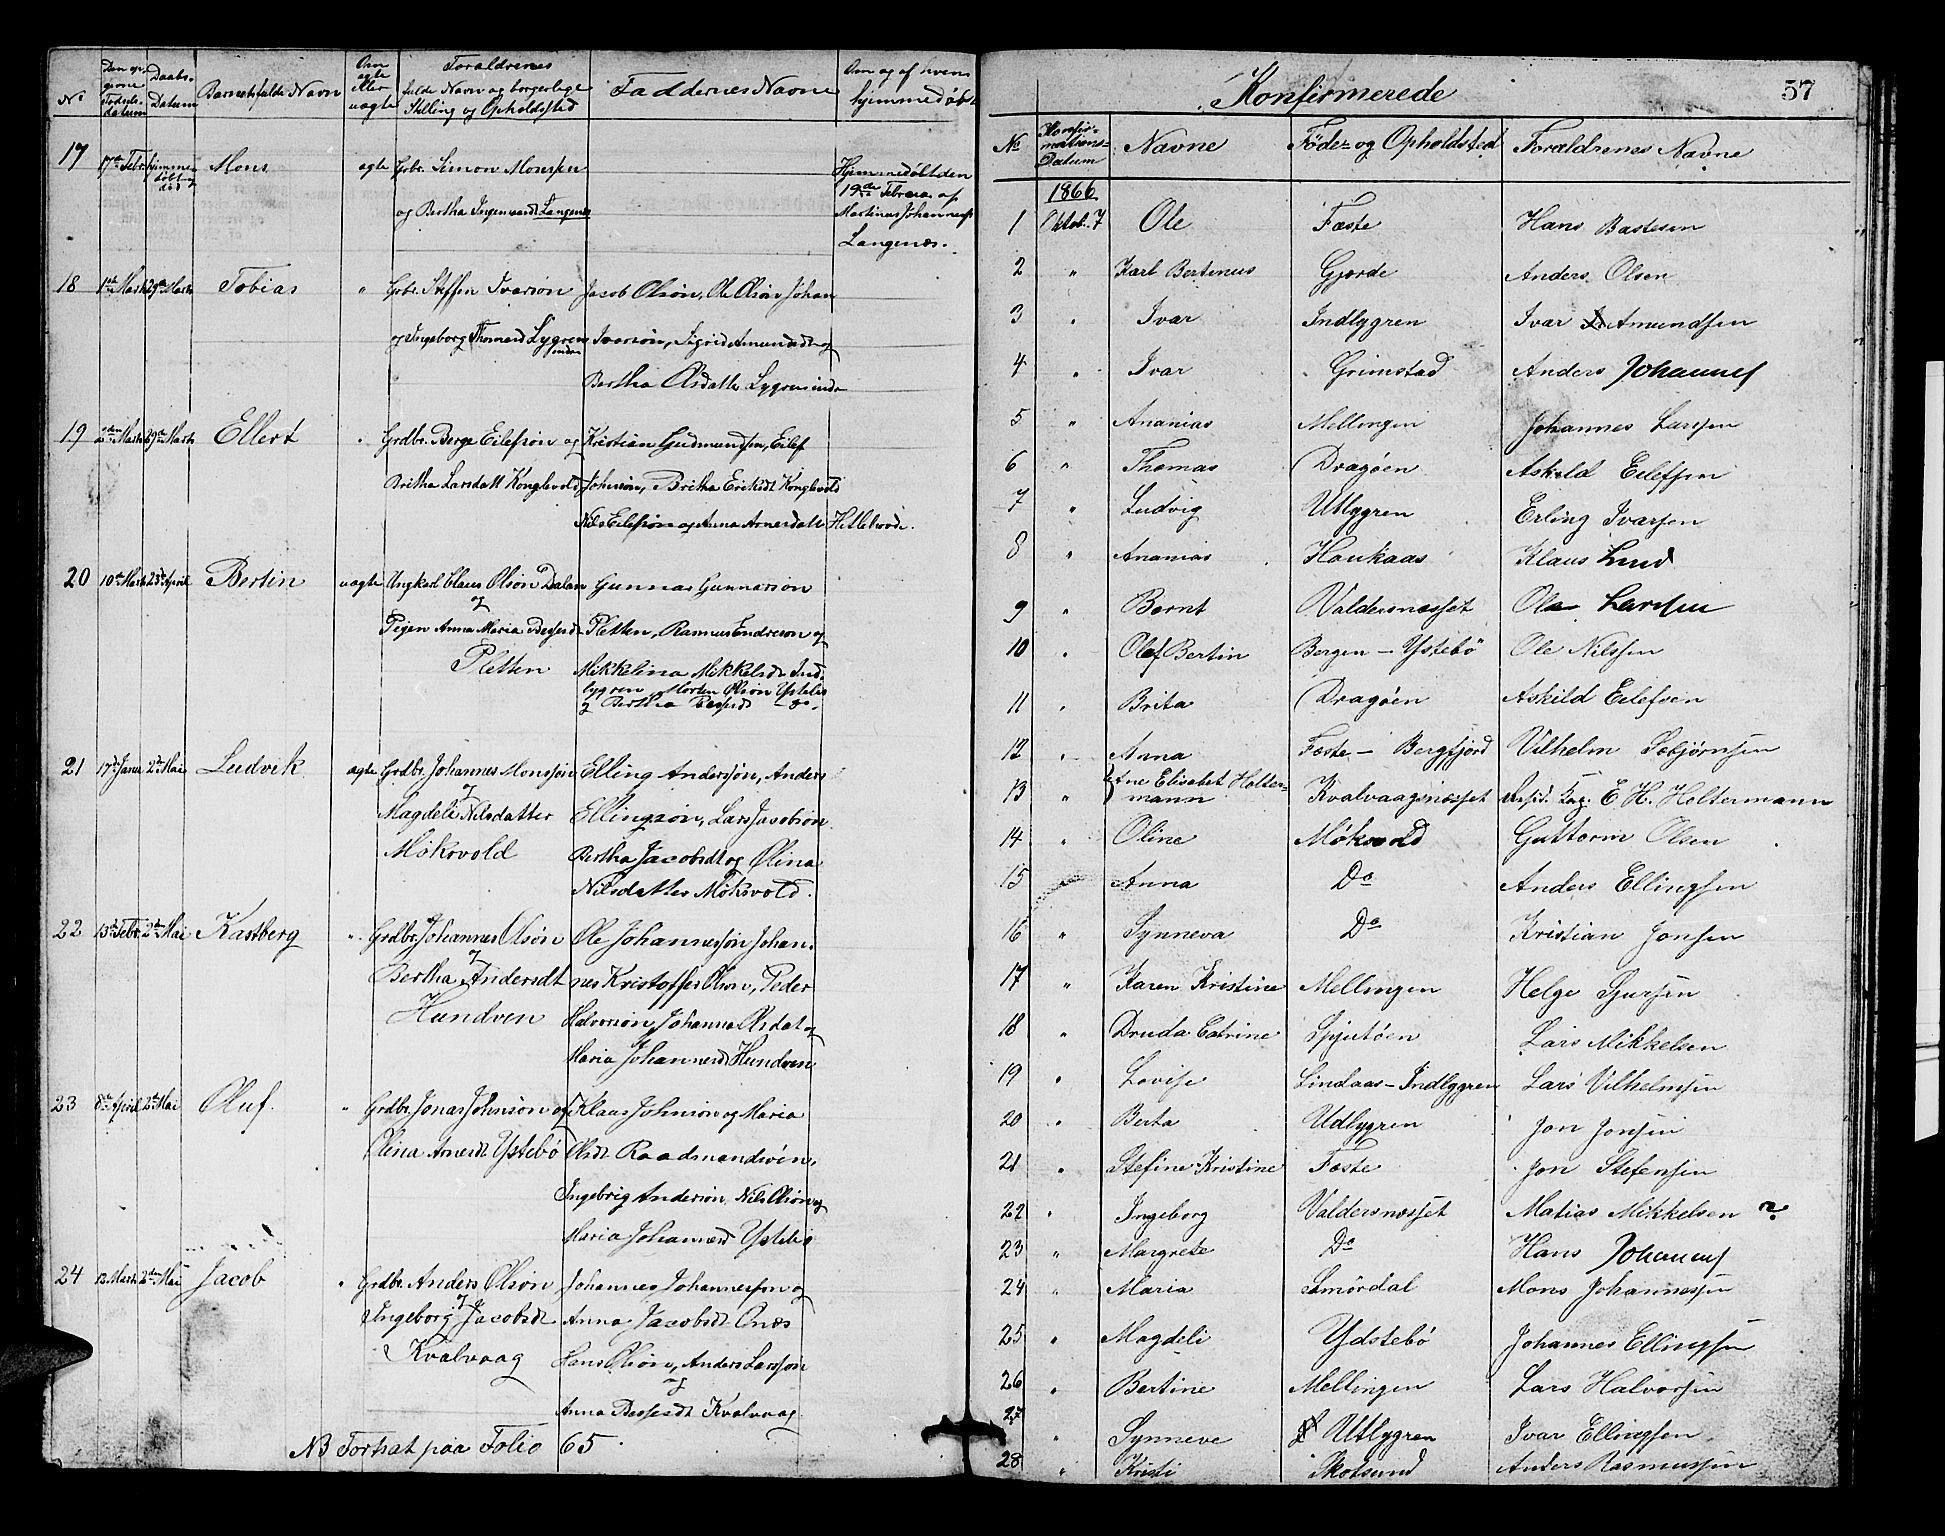 No
Den op-
givne
Fødsels-
datum
Daabs-
Datum
Barnets fulde Navn
Om
ægte
eller
uægte
Forældrenes
fulde Navn og borgerlege
Stilling og Opholdsted
Faddernes Navne
Om og af hvem
hjemmedøbt
17 17de Febr. hjemme døbt og død Mons ægte Grbr. Simon Monssen
og Bertha Ingemardt Langenæs
Hjemmedøbt den
19de Februar af
Martinus Johannesen
Langenæs.
18 1ste Marts 29de Marts Tobias " Grbr. Steffen Ivarson Jacob Olsøn, Ole Olsøn Johan
og Ingeborg Thomasd Lygren indre Ivarsøn, Sigrid Amundsdt og
Bertha Olsdatte Lygren indr
19 2den Marts 29de Marts Ellert " Grdbr. Berge Eilefsøn og Kristian Gudmundsen, Eilef
Britha Larsdatt Konglevold Johnsøn, Britha Eriksdt Konglevold
Nils Eilefsøn og Anna Arnesdatte Hitlevode.
20 10de Marts 23de April Bertin uægte Ungkarl Claus Olsøn Dalen Gunnar Gunnarsøn
og
Pigen Anna Maria Bessesd Pletten, Rasmus Endreson og
Pletten Mikkelina Mikkelsdt Ind-
lygren, Morten Olsøn Ystebø
og Bertha Bessesd do.
21 17de Janu 2den Mai Ludvik ægte Grdbr. Johannes Monssøn Elling Anderssøn, Anders
og
Magdeli Nilsdatter Ellingsøn, Lars Jacobsøn
Møksvold Bertha Jacobsdt og Olina
Nilsdatter Møksvold.
22 13de Febr. 2den Mai Kastberg " Grdbr. Johannes Olsøn Ole Johannessøn Johan-
og
Bertha Andersdt nes Kristoffer Olsøn, Peder
Hundven Halvorsøn, Johanna Olsdat og
Maria Johannesd Hundven
23 8de April 2den Mai Oluf. " Grdbr. Jonas Johnsøn og Klaas Johnsøn og Maria
Olina Arnesdt Ystebø Olsdt Raadmandsöen,
Ingebrig Andersøn, Nils Olsøn og
Maria Johannesd Ystebø
24 12 Marts 2den Mai Jacob " Grdbr. Anders Olsøn Johannes Johannessøn og
og
Ingeborg Jacobsdt Anna Jacobsdt Qnæs
Kvalvaag Hans Olsøn, Anders Larssøn
og
Anna Bessesdt Kvalvaag
NB Fortsat paa Folio 65.
Konfirmerede 57
No Konfir-
mations-
Datum Navne Föde- og Opholdsted Forældrenes Navne
1866
1 Oktob. 7 Ole Fæste Hans Bastesen
2 " Karl Bertinus Gjerde Anders Olsen
3 " Ivar Indlygren Ivar Amundsen
4 " Ivar Grimstad Anders Johannes
5 " Ananias Mellingen Johannes Larssen
6 " Thomas Dragöen Askild Eilefsen
7 " Ludvig Utlygren Erling Ivarsen
8 " Ananias Haukaas Klaus Lund
9 " Bernt Valdersnæsset Ole Larssen
10 " Olaf Bertin Bergen - Ystebö Ole Nilssen
11 " Brita Dragöen Askild Eilefsen
12 " Anna Fæste - Bergfjord Vilhelm Sebjørnsen
13 " Ane Elisabet Holter-
mann Kvalvaagsnæsset Kap. E H. Holtermann
14 " Oline Møksvold Guttorm Olsen
15 " Anna Do Anders Ellingsen
16 " Synneva Do Kristian Jonsen
17 " Karen Kristine Mellingen Helge Sjursen
18 " Druda Catrine Spjutöen Lars Mikkelsen
19 " Lovise Lindaas - Indlyggren Lars Vilhelmsen
20 " Berta Udlygren Jon Jonsen
21 " Stefine Kristine Fæste Jon Stefensen
22 " Ingeborg Valdersnæsset Matias Mikkelsen ?
23 " Margrete Do Hans Johannes
24 " Maria Smørdal Mons Johannessen
25 " Magdeli Ydstebö Johannes Ellingsen
26 " Bertine Mellingen Lars Halvorsen
27 " Synneve Utlygren Ivar Ellingsen
28 " Kristi Skotsund Anders Rasmussen